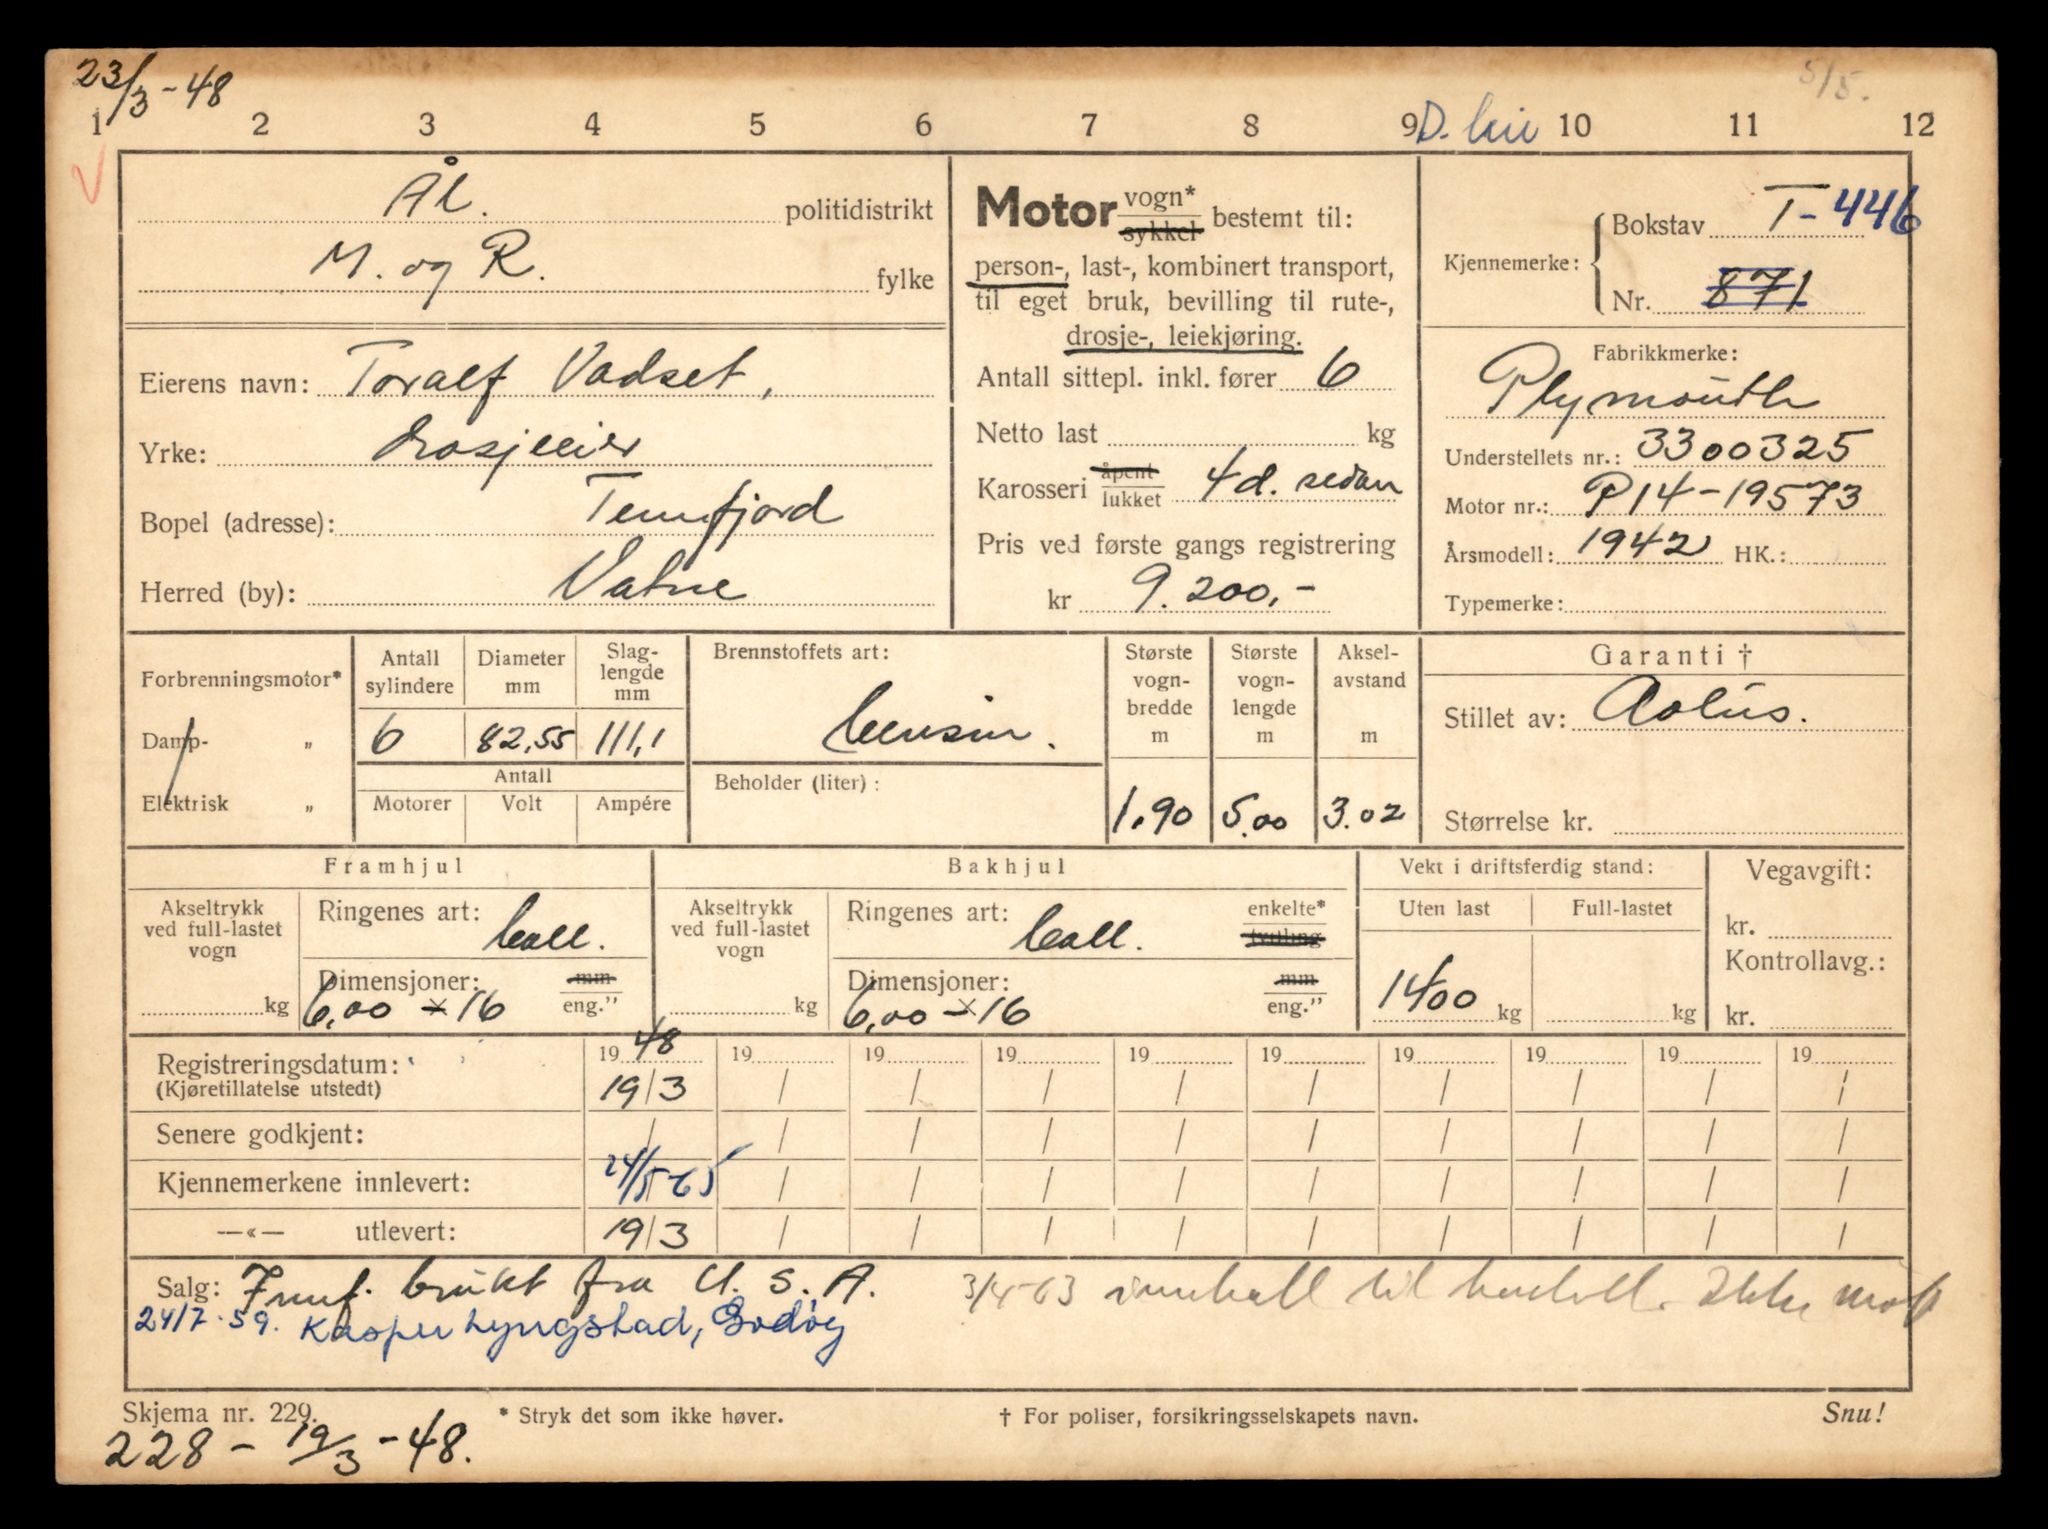 23/3-48
5/5.
1 2 3 4 5 6 7 8 9 D. 10 11 12
V
Ål. politidistrikt
M. og R. fylke
Eierens navn: Toralf Vadset,
Yrke: drosjeeier
Bopel (adresse): Tennfjord
Herred (by): Vatne
Motor vogn* sykkel bestemt til:
person-, last-, kombinert transport,
til eget bruk, bevilling til rute-,
drosje-, leiekjøring.
Antall sittepl. inkl. fører 6
Netto last kg
Karosseri åpent lukket 4d. sedan
Pris ved første gangs registrering
kr 9.200,-
Kjennemerke: Bokstav T-446
Nr. 871
Fabrikkmerke:
Plymouth
Understellets nr.: 3300325
Motor nr.: P14-19573
Årsmodell: 1942 HK.:
Typemerke:
Forbrenningsmotor*
Damp- „
Elektrisk „
Antall sylindere Diameter mm Slag-lengde mm
6 82,55 111,1
Antall
Motorer Volt Ampére
Brennstoffets art:
bensin.
Beholder (liter):
Største vogn-bredde m Største vogn-lengde m Aksel-avstand m
1,90 5,00 3.02
Garanti †
Stillet av: Aolus.
Størrelse kr.
Framhjul
Akseltrykk ved full-lastet vogn kg
Ringenes art: ball.
Dimensjoner: mm eng."
6,00 x 16
Bakhjul
Akseltrykk ved full-lastet vogn kg
Ringenes art: ball. enkelte* tvilling
Dimensjoner: mm eng."
6,00 x 16
Vekt i driftsferdig stand:
Uten last Full-lastet
1400 kg kg
Vegavgift:
kr.
Kontrollavg.:
kr.
Registreringsdatum: 1948 19 19 19 19 19 19 19 19 19
(Kjøretillatelse utstedt) 19/3 / / / / / / / / /
Senere godkjent: / / / / / / / / / /
Kjennemerkene innlevert: 24/5-65 / / / / / / / / /
—«— utlevert: 19/3 / / / / / / / / /
Salg: Innf. brukt fra U.S.A. 3/4-63 innkalt til kontroll. Ikke møtt
24/7-59. Kasper Lyngstad, Godøy
Skjema nr. 229. * Stryk det som ikke høver. † For poliser, forsikringsselskapets navn. Snu!
228 - 19/3-48.